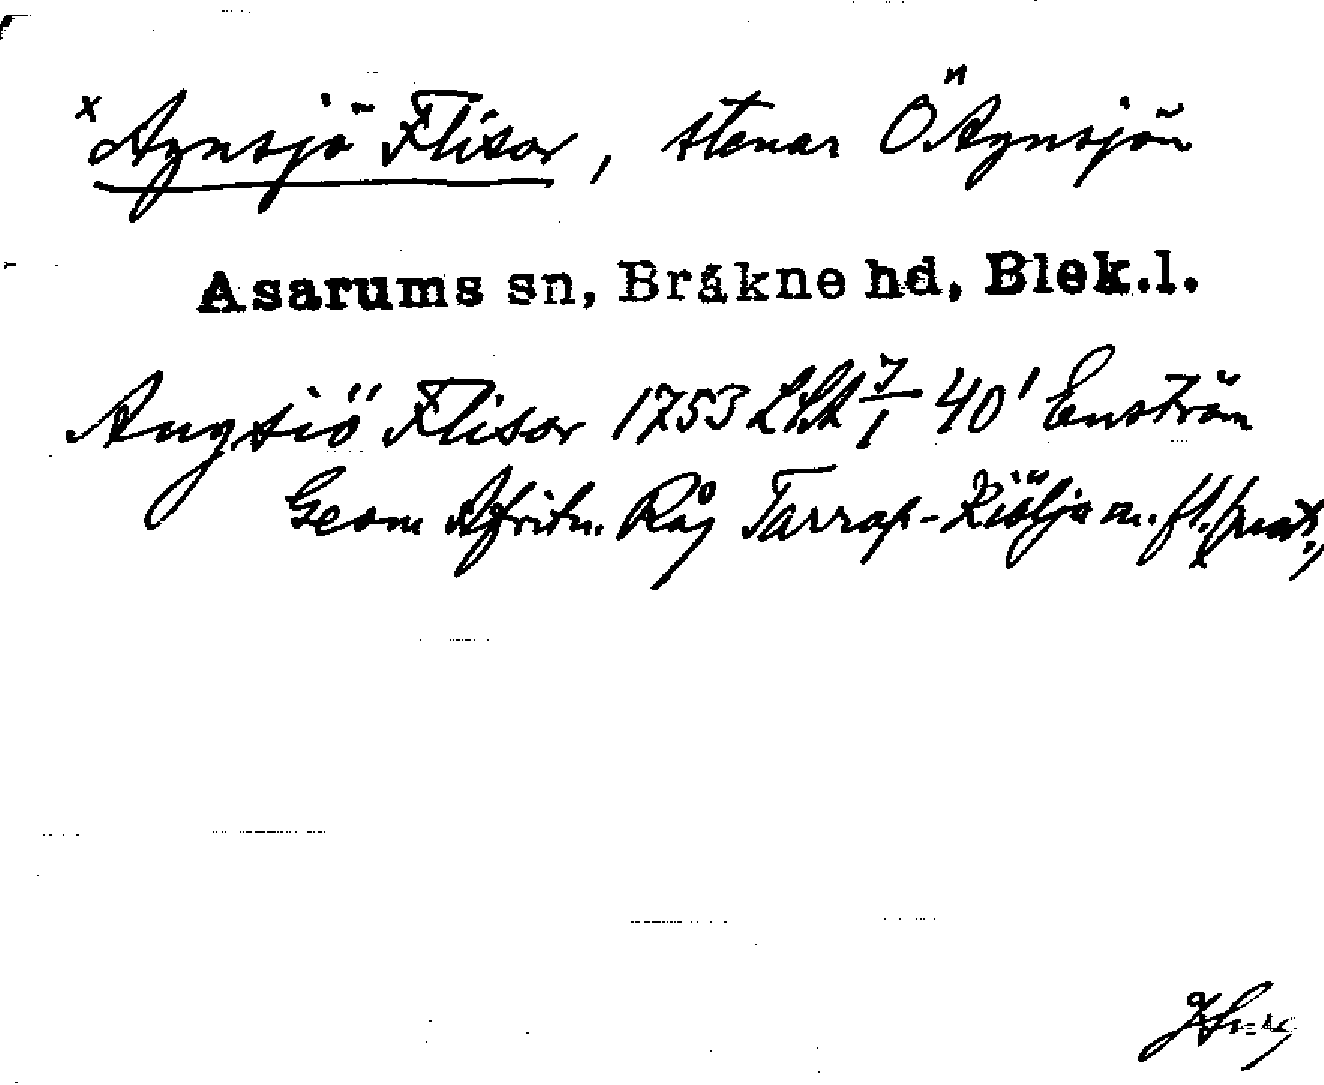 x Agnsjö Flisor, stenar Ö Agnsjön
Asarums sn, Bräkne hd, Blek.l.
Angsiö Flisor 1753 LSA 7/1 40' Enström
Geom Afritn. Råg Tarrap-Kiölja m. fl.